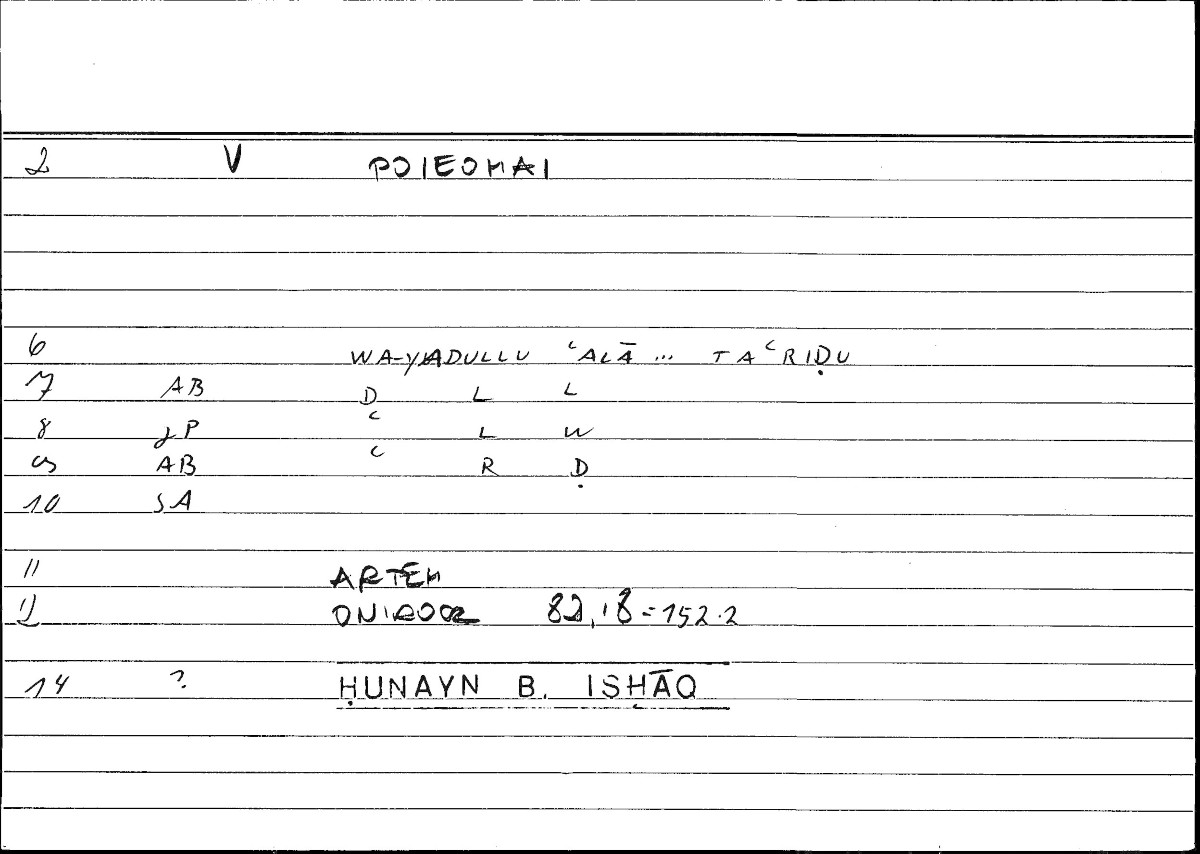 2 V POIEOMAI
6 WA-YADULLU ʿALĀ ... TAʿRIḌU
7 AB D L L
8 JP ʿ L W
9 AB ʿ R Ḍ
10 SA
11 ARTEM
12 ONIROCR 82,18=152.2
14 ? ḤUNAYN B. ISḤĀQ